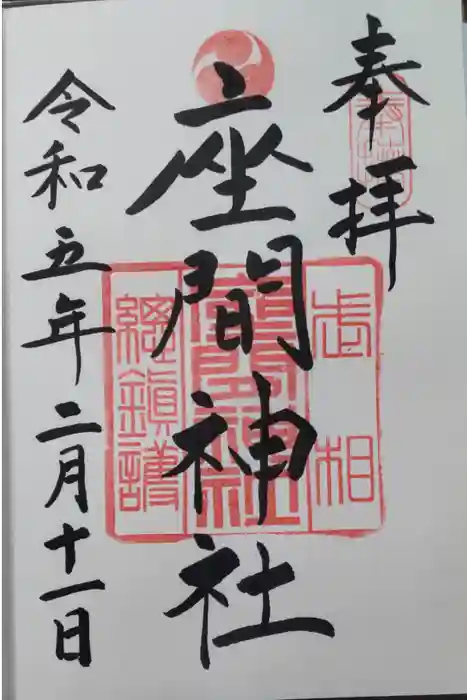 奉拝
座間神社
相武
座間神社
総鎮護
令和五年二月十一日